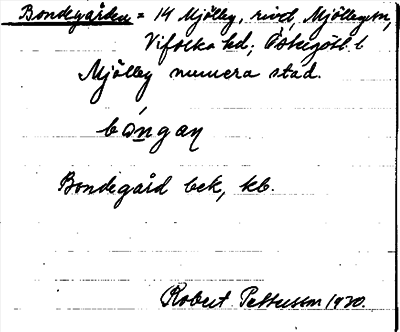 Bondegården = 14 Mjölby, Mjölby sn,
Vifolka hd; Östergötl. l
Mjölby numera stad.
bóngaɳ
Bondegård bek, kb.
Robert Pettersson 1920.